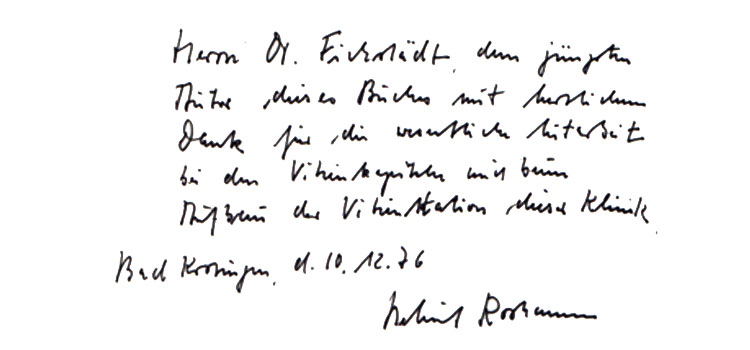 Herrn Dr. Fickstädt, dem jüngsten
Autor dieses Buches mit herzlichem
Dank für die wesentliche Mitarbeit
bei den Vitienkapiteln und beim
Aufbau der Vitienstation dieser Klinik.
Bad Krozingen, d. 10.12.76
Helmut Roskamm